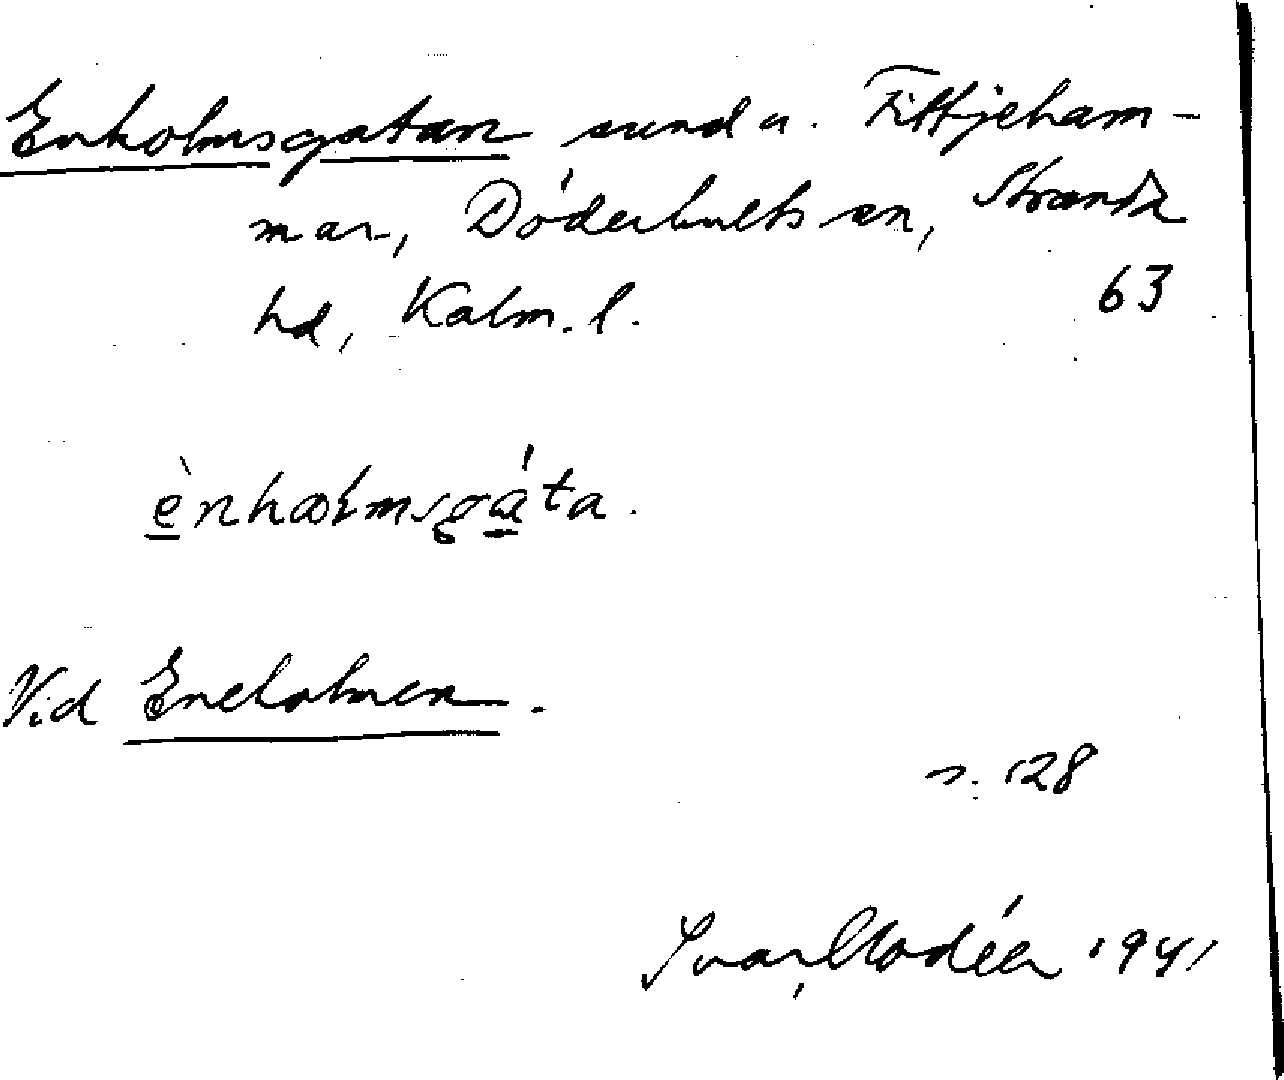 Enholmsgatan sund u. Fittjeham-
mar, Döderhults sn, Stranda
hd, Kalm. l. 63
ènhålmsgáta.
Vid Eneholmen.
n. 128
Ivar Modéer 1941